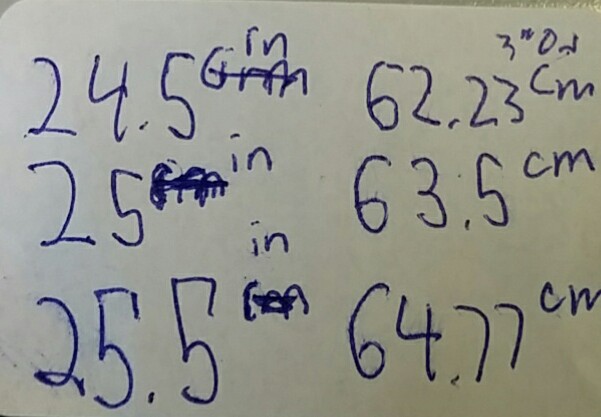 3"Od
24.5 in 62.23 cm
25 in 63.5 cm
25.5 in 64.77 cm